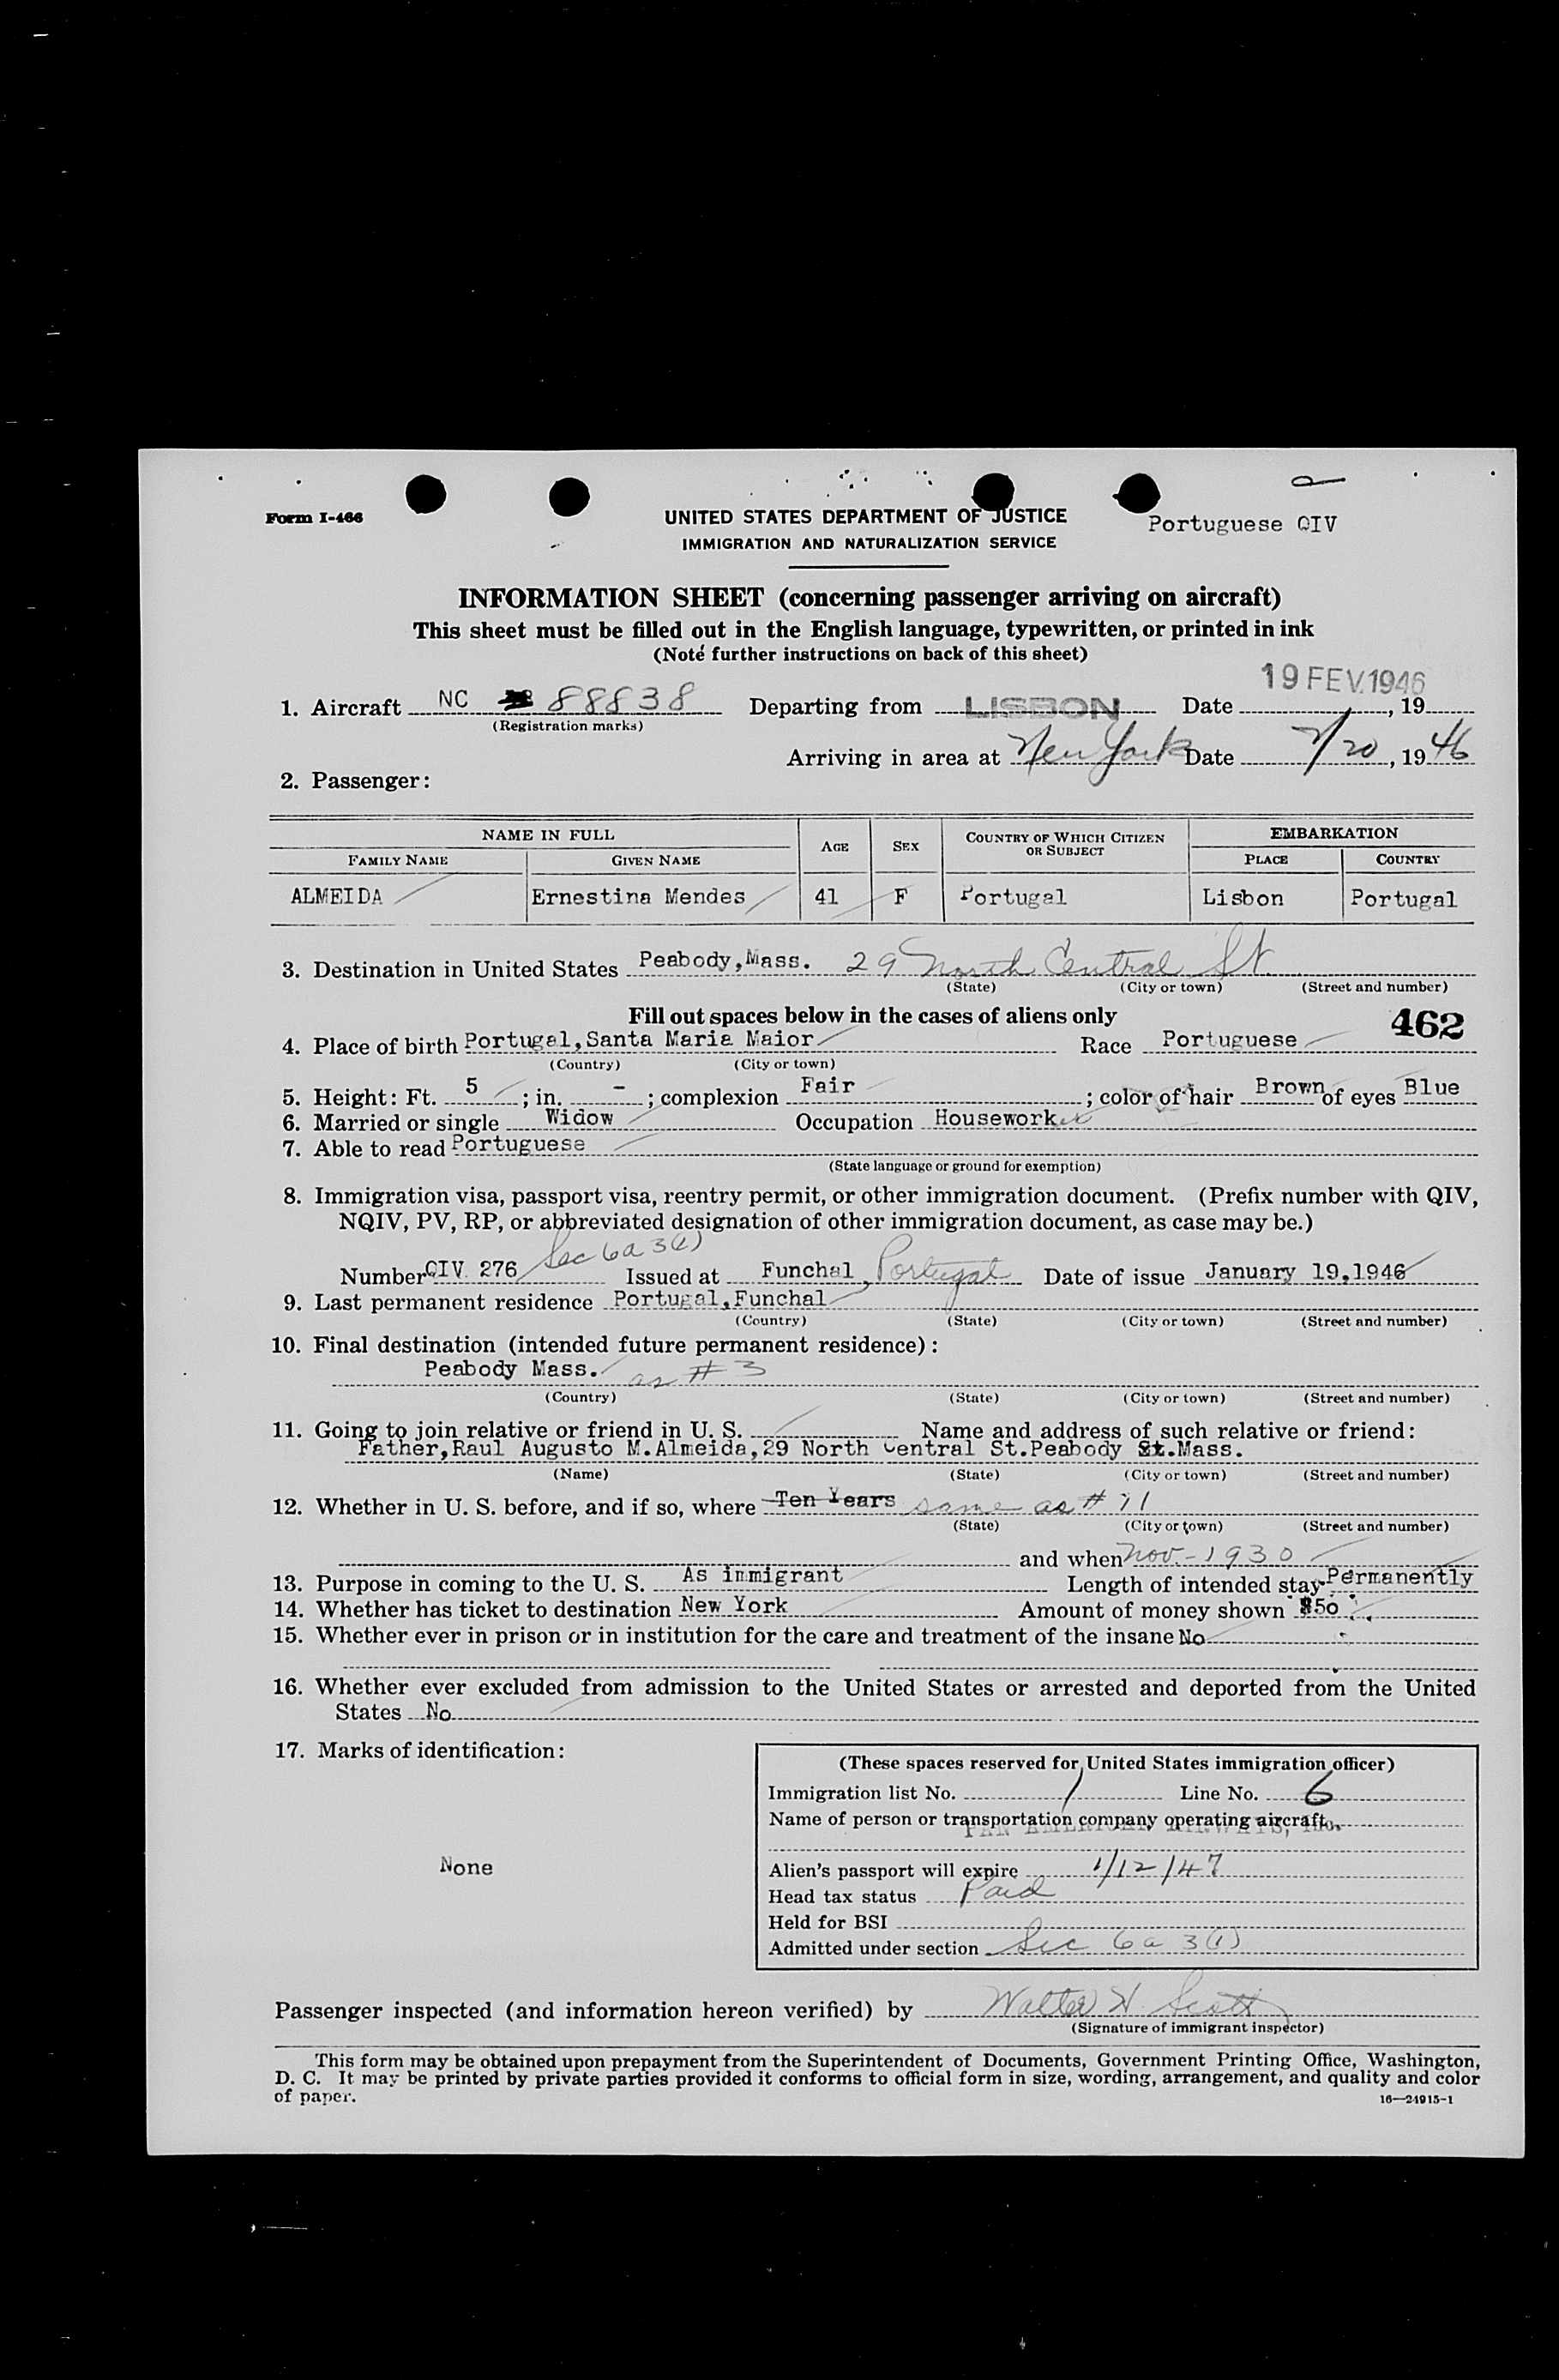 Form I-466
UNITED STATES DEPARTMENT OF JUSTICE
Portuguese QIV
IMMIGRATION AND NATURALIZATION SERVICE
INFORMATION SHEET (concerning passenger arriving on aircraft)
This sheet must be filled out in the English language, typewritten, or printed in ink
(Note further instructions on back of this sheet)
19 FEV.1946
1. Aircraft NC 88838 Departing from LISBON Date , 19
(Registration marks)
Arriving in area at New York Date 2/20, 1946
2. Passenger:
NAME IN FULL AGE SEX COUNTRY OF WHICH CITIZEN OR SUBJECT EMBARKATION
FAMILY NAME GIVEN NAME PLACE COUNTRY
ALMEIDA Ernestina Mendes 41 F Portugal Lisbon Portugal
3. Destination in United States Peabody,Mass. 29 North Central St
(State) (City or town) (Street and number)
Fill out spaces below in the cases of aliens only
462
4. Place of birth Portugal,Santa Maria Maior Race Portuguese
(Country) (City or town)
5. Height: Ft. 5 ; in. - ; complexion Fair ; color of hair Brown of eyes Blue
6. Married or single Widow Occupation Houseworker
7. Able to read Portuguese
(State language or ground for exemption)
8. Immigration visa, passport visa, reentry permit, or other immigration document. (Prefix number with QIV,
NQIV, PV, RP, or abbreviated designation of other immigration document, as case may be.)
Number QIV 276 Sec 6a 3(1) Issued at Funchal, Portugal Date of issue January 19,1946
9. Last permanent residence Portugal,Funchal
(Country) (State) (City or town) (Street and number)
10. Final destination (intended future permanent residence):
Peabody Mass. as # 3
(Country) (State) (City or town) (Street and number)
11. Going to join relative or friend in U. S. Name and address of such relative or friend:
Father,Raul Augusto M.Almeida,29 North Central St.Peabody St.Mass.
(Name) (State) (City or town) (Street and number)
12. Whether in U. S. before, and if so, where Ten Years same as # 11
(State) (City or town) (Street and number)
and when Nov.-1930
13. Purpose in coming to the U. S. As immigrant Length of intended stay Permanently
14. Whether has ticket to destination New York Amount of money shown $50
15. Whether ever in prison or in institution for the care and treatment of the insane No
16. Whether ever excluded from admission to the United States or arrested and deported from the United
States No
17. Marks of identification:
None
(These spaces reserved for United States immigration officer)
Immigration list No. 1 Line No. 6
Name of person or transportation company operating aircraft
PAN AMERICAN AIRWAYS, Inc.
Alien's passport will expire 1/12/47
Head tax status Paid
Held for BSI
Admitted under section Sec 6a 3(1)
Passenger inspected (and information hereon verified) by Walter H. Scott
(Signature of immigrant inspector)
This form may be obtained upon prepayment from the Superintendent of Documents, Government Printing Office, Washington,
D. C. It may be printed by private parties provided it conforms to official form in size, wording, arrangement, and quality and color
of paper.
16—24915-1